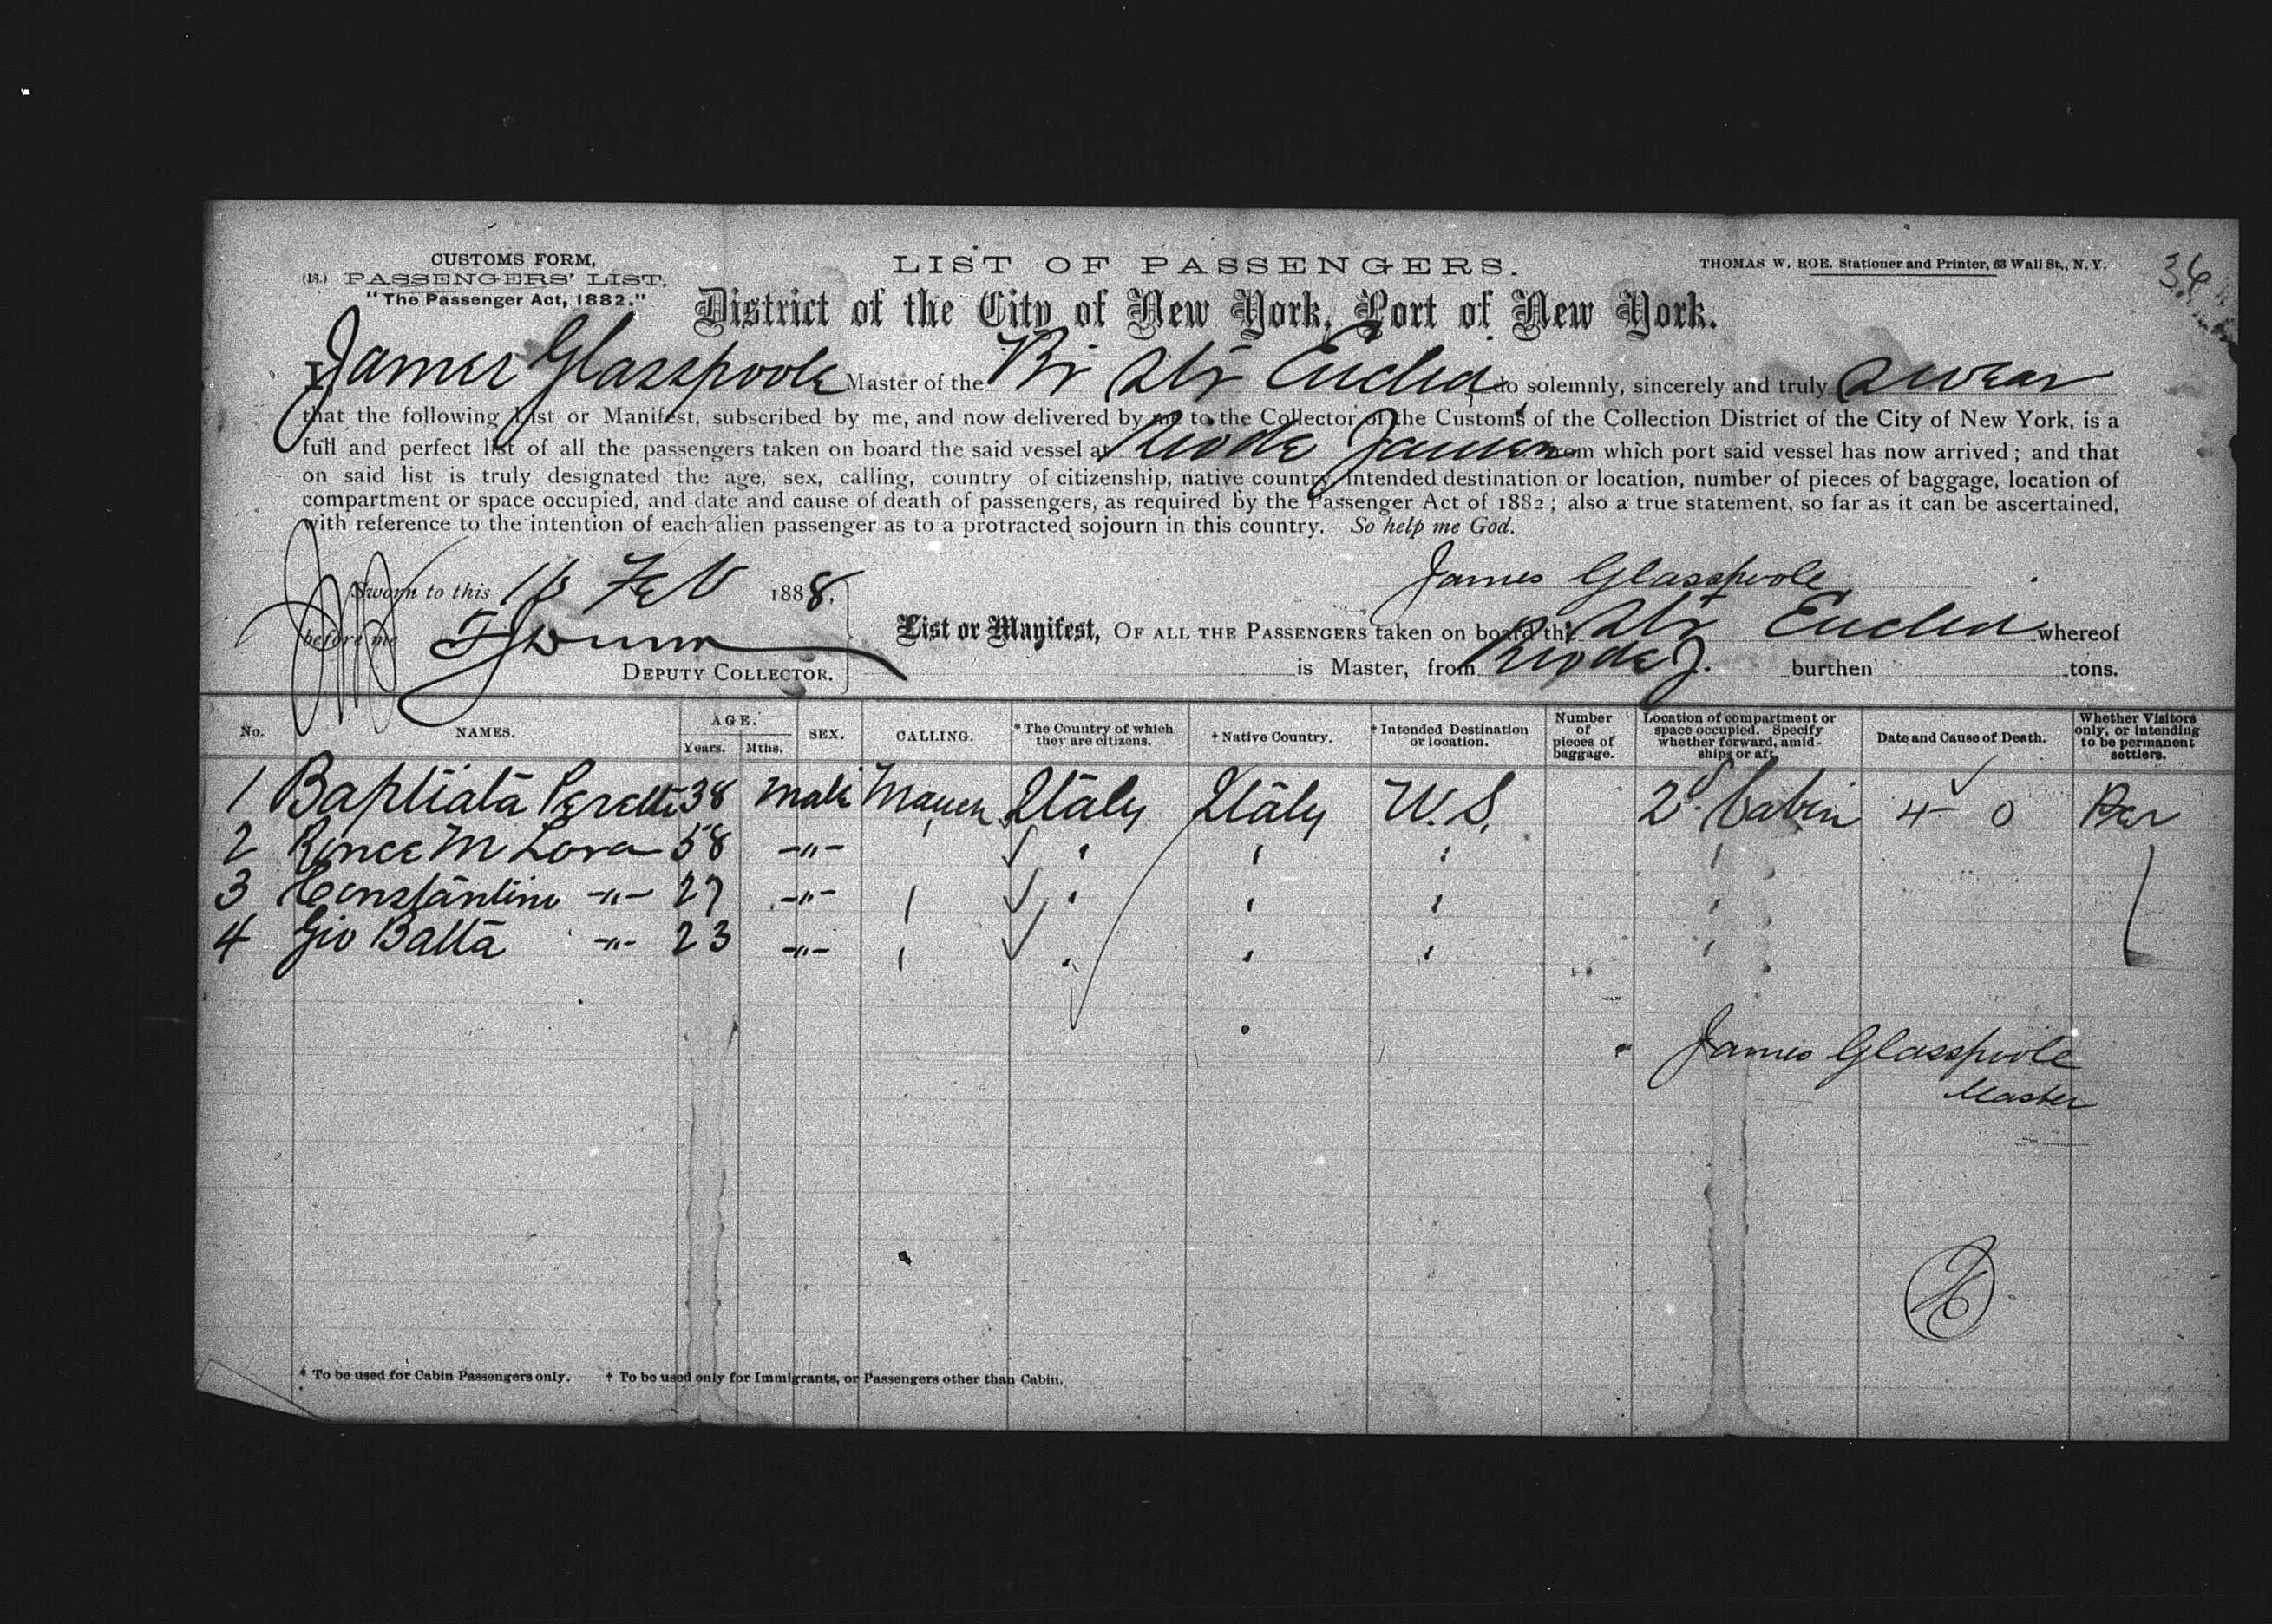 CUSTOMS FORM,
(18.) PASSENGERS' LIST.
"The Passenger Act, 1882."
LIST OF PASSENGERS.
THOMAS W. ROE. Stationer and Printer, 63 Wall St., N. Y.
36
District of the City of New York, Port of New York.
I James Glasspoole Master of the Br Str Euclid do solemnly, sincerely and truly swear
that the following List or Manifest, subscribed by me, and now delivered by me to the Collector of the Customs of the Collection District of the City of New York, is a
full and perfect list of all the passengers taken on board the said vessel at from which port said vessel has now arrived; and that
on said list is truly designated the age, sex, calling, country of citizenship, native country intended destination or location, number of pieces of baggage, location of
compartment or space occupied, and date and cause of death of passengers, as required by the Passenger Act of 1882; also a true statement, so far as it can be ascertained,
with reference to the intention of each alien passenger as to a protracted sojourn in this country. So help me God.
Sworn to this Feb 1888.
James Glasspoole
before me
DEPUTY COLLECTOR.
List or Manifest, OF ALL THE PASSENGERS taken on board the Str Euclid whereof
is Master, from burthen tons.
No. NAMES. AGE. Years. Mths. SEX. CALLING. * The Country of which they are citizens. † Native Country. † Intended Destination or location. Number of pieces of baggage. Location of compartment or space occupied. Specify whether forward, amidships or aft. Date and Cause of Death. Whether Visitors only, or intending to be permanent settlers.
1 Baptiata Peretti 38 Male Italy Italy U.S. 2d Cabin 4 0 Per
2 M Lova 58 -"-
3 Constantino -"- 27 -"-
4 Gio Batta -"- 23 -"-
James Glasspoole
Master
* To be used for Cabin Passengers only. † To be used only for Immigrants, or Passengers other than Cabin.